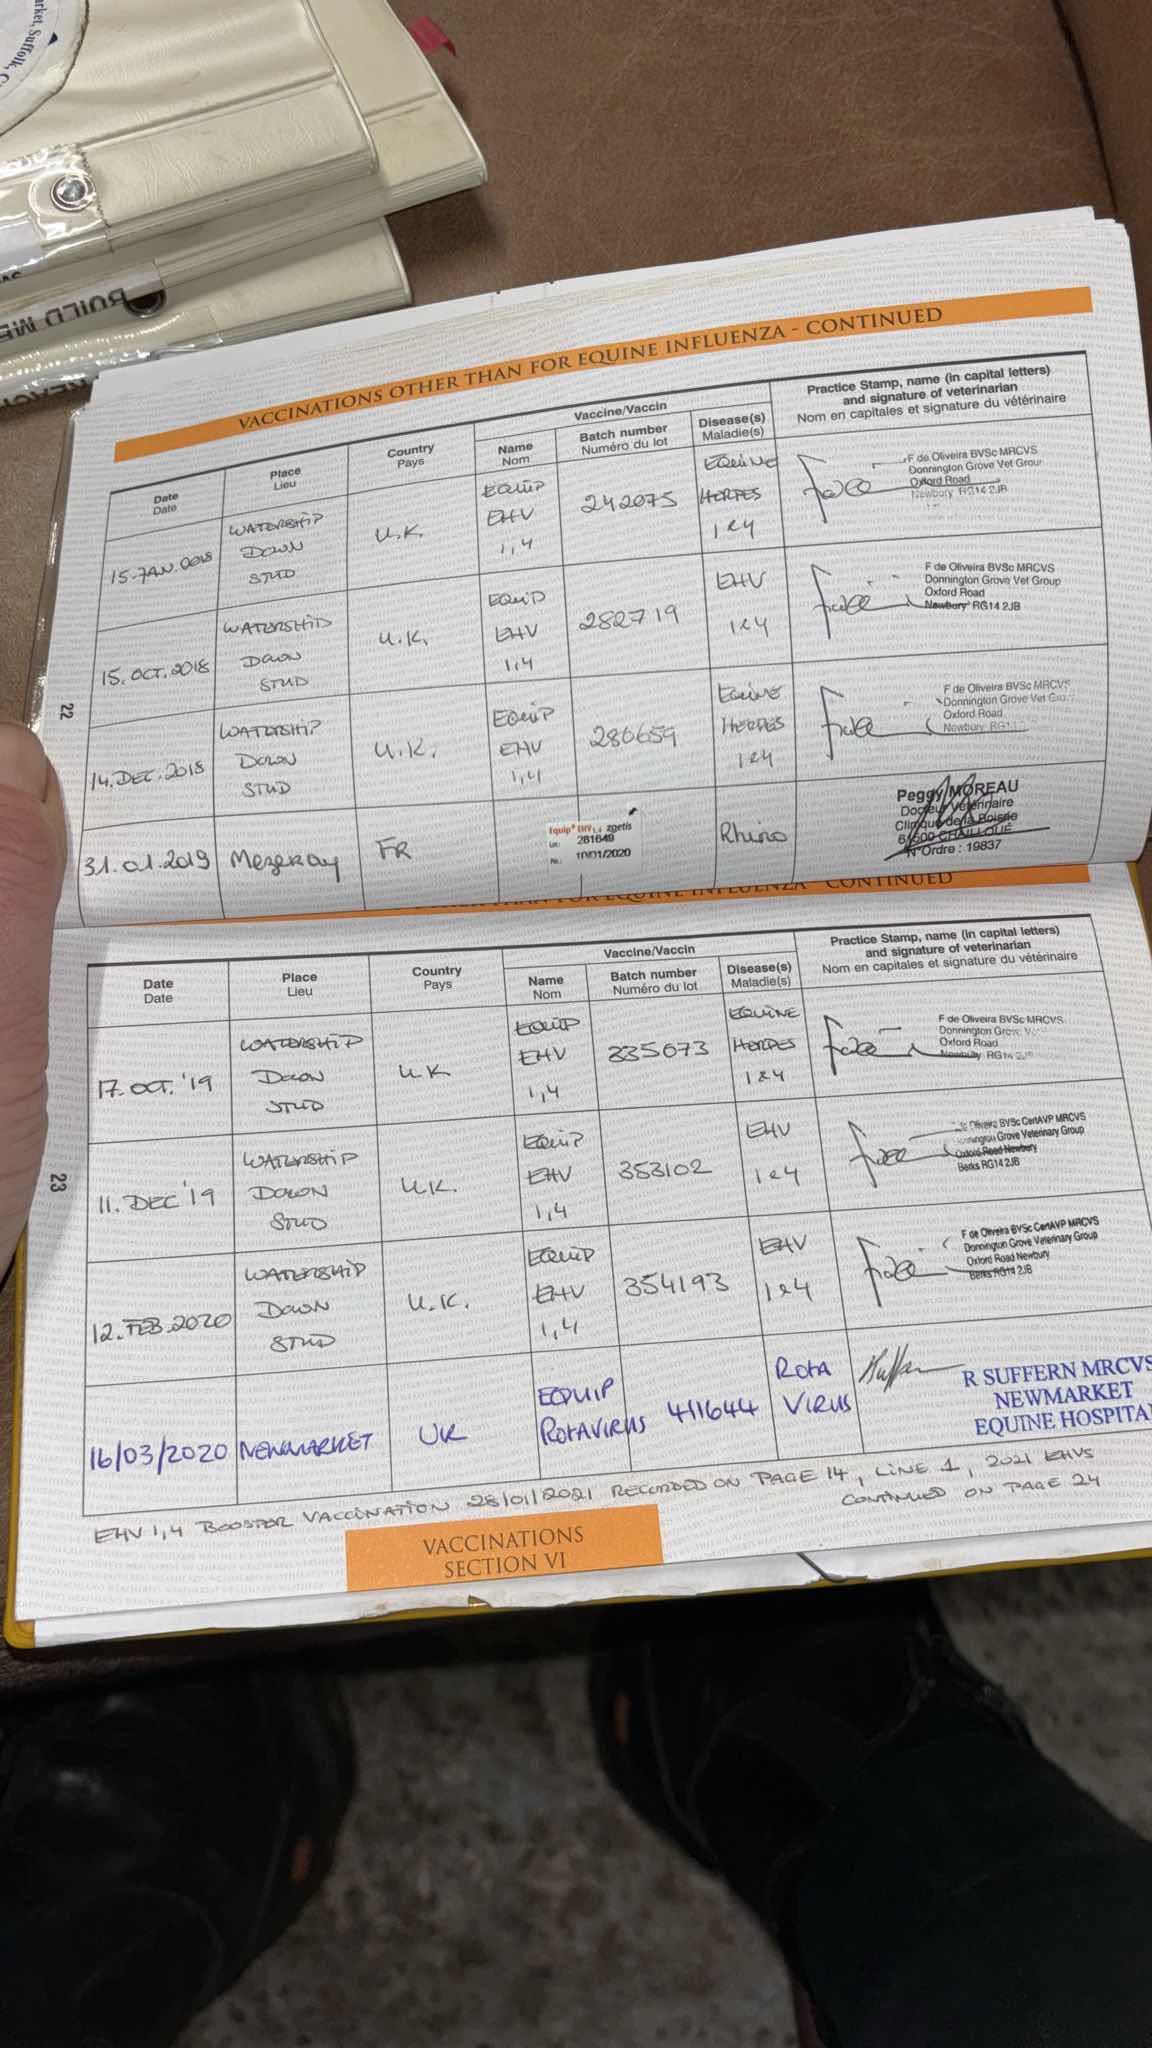 arket, Suffolk, C
BUILD ME
VACCINATIONS OTHER THAN FOR EQUINE INFLUENZA - CONTINUED
Date
Date
Place
Lieu
Country
Pays
Vaccine/Vaccin
Name
Nom
Batch number
Numéro du lot
Disease(s)
Maladie(s)
Practice Stamp, name (in capital letters)
and signature of veterinarian
Nom en capitales et signature du vétérinaire
15.JAN.0018
WATERSHIP
DOWN
STUD
U.K.
EQUIP
EHV
1,4
242075
EQUINE
HERPES
1 & 4
F de Oliveira BVSc MRCVS
Donnington Grove Vet Group
Oxford Road
Newbury RG14 2JB
15.OCT.2018
WATERSHIP
DOWN
STUD
U.K.
EQUIP
EHV
1,4
282719
EHV
1 & 4
F de Oliveira BVSc MRCVS
Donnington Grove Vet Group
Oxford Road
Newbury RG14 2JB
14.DEC.2018
WATERSHIP
DOWN
STUD
U.K.
EQUIP
EHV
1,4
286659
EQUINE
HERPES
1 & 4
F de Oliveira BVSc MRCVS
Donnington Grove Vet Group
Oxford Road
Newbury
31.01.2019
Mezeray
FR
Equip® EHV1,4 zoetis
Lot: 261649
Per.: 10/01/2020
Rhino
Peggy MOREAU
Docteur Vétérinaire
Clinique de la Boisrie
61500 CHAILLOUÉ
N°Ordre : 19837
22
CONTINUED
Date
Date
Place
Lieu
Country
Pays
Vaccine/Vaccin
Name
Nom
Batch number
Numéro du lot
Disease(s)
Maladie(s)
Practice Stamp, name (in capital letters)
and signature of veterinarian
Nom en capitales et signature du vétérinaire
17.OCT.'19
WATERSHIP
DOWN
STUD
U.K
EQUIP
EHV
1,4
335073
EQUINE
HERPES
1 & 4
F de Oliveira BVSc MRCVS
Donnington Grove Ve
Oxford Road
Newbury RG14 2JB
11.DEC'19
WATERSHIP
DOWN
STUD
U.K.
EQUIP
EHV
1,4
353102
EHV
1 & 4
de Oliveira BVSc CertAVP MRCVS
Donnington Grove Veterinary Group
Oxford Road Newbury
Berks RG14 2JB
12.FEB.2020
WATERSHIP
DOWN
STUD
U.K.
EQUIP
EHV
1,4
354193
EHV
1 & 4
F de Oliveira BVSc CertAVP MRCVS
Donnington Grove Veterinary Group
Oxford Road Newbury
Berks RG14 2JB
16/03/2020
NEWMARKET
UK
EQUIP
ROTAVIRUS
411644
ROTA
VIRUS
R SUFFERN MRCVS
NEWMARKET
EQUINE HOSPITA
23
EHV 1,4 BOOSTER VACCINATION 28/01/2021 RECORDED ON PAGE 14, LINE 1, 2021 EHVS
CONTINUED ON PAGE 24
VACCINATIONS
SECTION VI